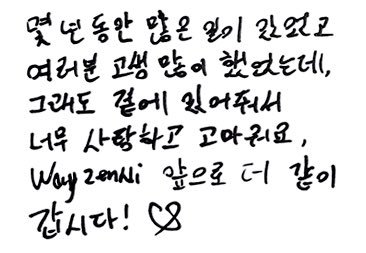 몇 년 동안 많은 일이 있었고
여러분 고생 많이 했었는데,
그래도 곁에 있어줘서
너무 사랑하고 고마워요,
Way Zenni 앞으로 더 같이
갑시다! ♡